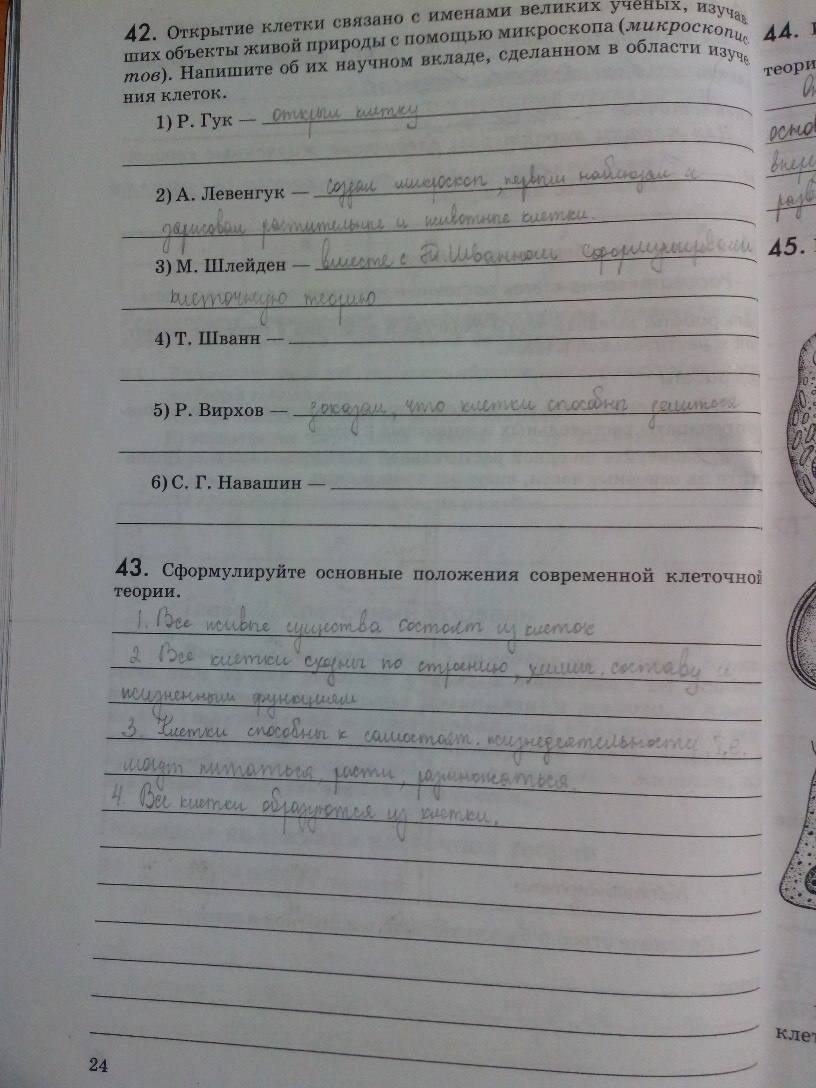 42. Открытие клетки связано с именами великих учёных, изучав
ших объекты живой природы с помощью микроскопа (микроскопис
тов). Напишите об их научном вкладе, сделанном в области изуче
ния клеток.
1) Р. Гук — открыл клетку
2) А. Левенгук — создал микроскоп, первым наблюдал и
зарисовал растительные и животные клетки.
3) М. Шлейден — вместе с Т. Шванном сформулировали
клеточную теорию
4) Т. Шванн —
5) Р. Вирхов — доказал, что клетки способны делиться
6) С. Г. Навашин —
43. Сформулируйте основные положения современной клеточной
теории.
1. Все живые существа состоят из клеток
2. Все клетки сходны по строению, химич. составу и
жизненным функциям
3. Клетки способны к самостоят. жизнедеятельности, т.е.
могут питаться, расти, размножаться.
4. Все клетки образуются из клетки.
24
44.
теори
осно
впер
разв
45.
клет